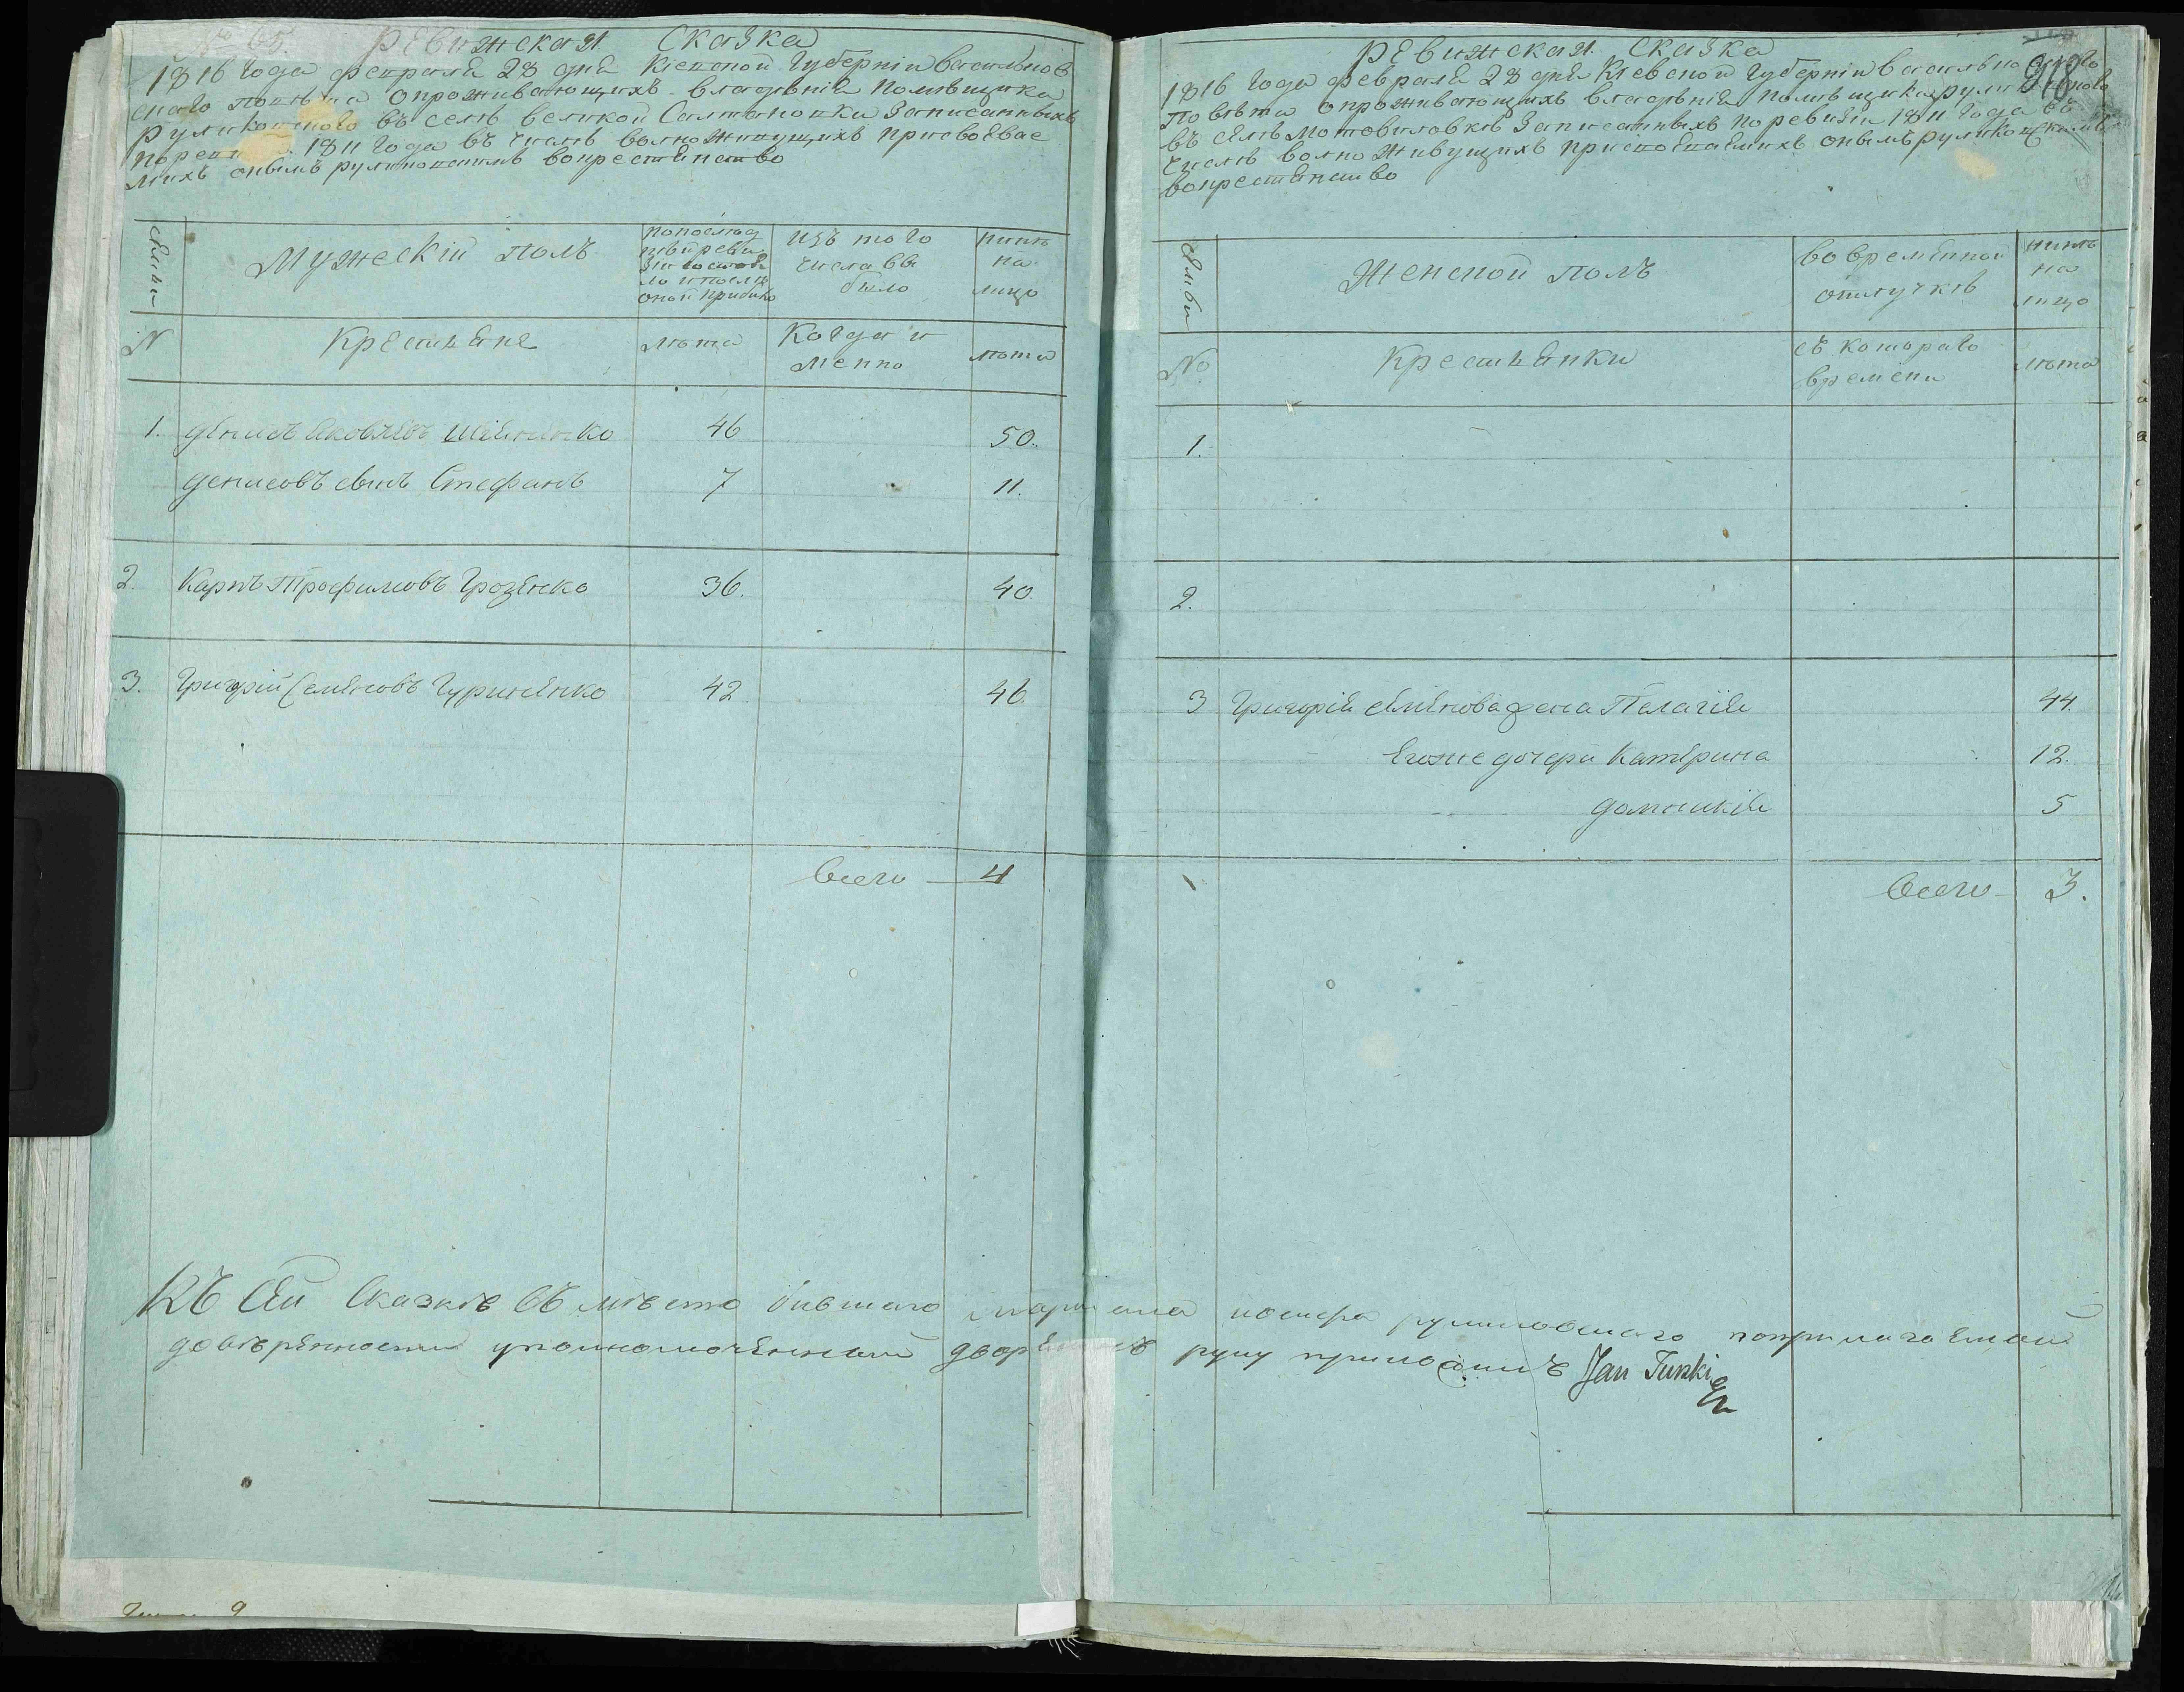 № 65. Ревижская Сказка
1816 года февраля 28 дня Кіевской Губерніи Васильков
скаго повѣта опроживающихъ владѣнія помѣщика
Руликовского въ селѣ Великой Салтановки Записанныхъ
1811 года въ числѣ волно живущихъ присвоевае
михъ онымъ руликовскимъ вокрестянство
семьи
Мужескій полъ
попослед
ней реви
зіи состоя
ло и послѣ
оной прибило
Изъ того
числа вы
было
нинѣ
на
лицо
N
Крестьяне
лѣта
Когда и
менно
лѣта
1. денисъ Яковлевъ 46 50.
денисовъ сынъ Стефанъ 7 11.
2. Карпъ Трофимовъ Грозенко 36. 40.
3. Григорій Семеновъ Гуриненко 42 46.
Всего 4
Ревижская Сказка
1816 года февраля 28 дня Кіевской Губерніи Васильковскаго
повѣта опроживающихъ владѣнія помѣщика руликовского
въ селѣ Мотовиловкѣ Записанныхъ поревизіи 1811 года въ
числѣ волно живущихъ присвоеваемихъ онымъ руликовскимъ
вокрестянство
семьи
Женской полъ
во временной
отлучкѣ
нинѣ
на
лицо
№
Крестьянки
съ котораго
времени
лѣта
1.
2.
3 Григорія семенова жена Пелагія 44.
Егоже дочери Катерина 12.
домникія 5
Всего 3.
Къ сей Сказкѣ въ мѣсто бившаго маршала иосифа руликовскаго поприлагаемой
довѣренности уполномоченный дворянинъ руку приложилъ Jan Turski